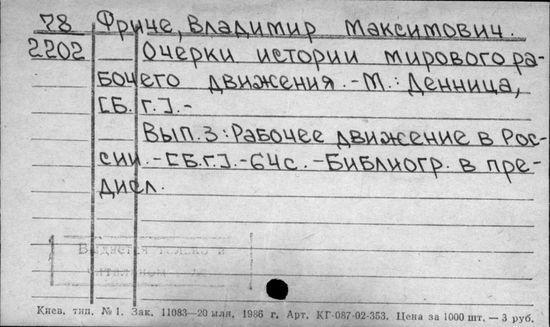 78 Фриче, Владимир Максимович.
2202 Очерки истории мирового ра-
бочего движения. - М.: Денница,
[Б. г.]. -
Вып. 3: Рабочее движение в Рос-
сии. - [Б.г.]. - 64с. - Библиогр. в пре-
дисл.
Выдается только в
читальном
Киев. тип. № 1. Зак. 11083—20 млн. 1986 г. Арт. КГ-087-02-353. Цена за 1000 шт. — 3 руб.